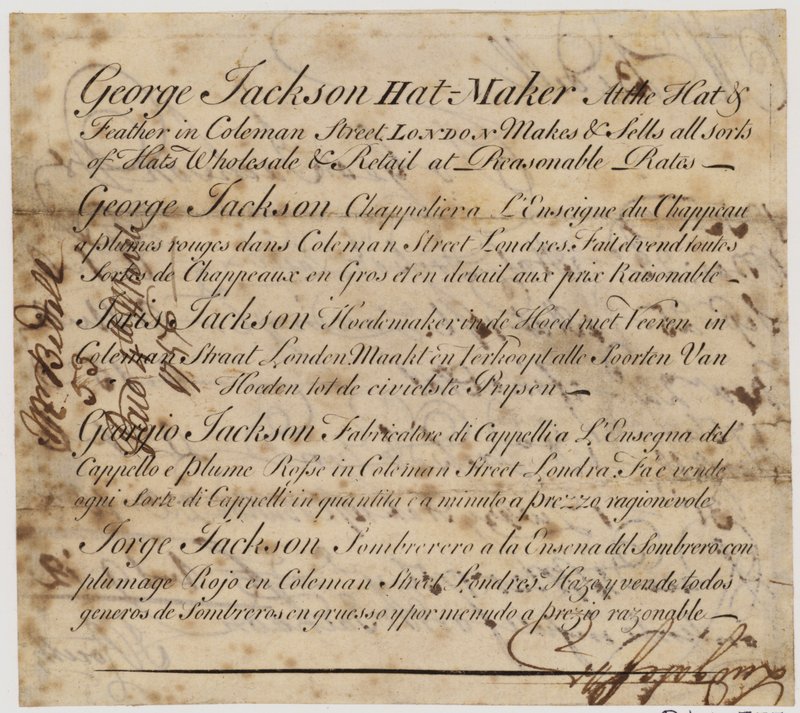 George Jackson Hat-Maker At the Hat &
Feather in Coleman Street LONDON Makes & Sells all sorts
of Hats Wholesale & Retail at Reasonable Rates —
George Jackson Chappelier a L'Enseigne du Chappeau
a plumes rouges dans Coleman Street Londres. Fait et vend toutes
Sortes de Chappeaux en Gros et en detail aux prix Raisonable —
Joris Jackson Hoedemaker in de Hoed met Veeren in
Coleman Straat Londen. Maakt en Verkoopt alle Soorten Van
Hoeden tot de civielste Prysen —
Georgio Jackson Fabricatore di Cappelli a L'Ensegna del
Cappello e plume Rosse in Coleman Street Londra. Fa e vende
ogni Sorte di Cappelli in quantita e a minuto a prezzo ragionevole
Jorge Jackson Sombrerero a la Ensena del Sombrero con
plumage Rojo en Coleman Street Londres. Haze y vende todos
generos de Sombreros en gruesso y por menudo a prezio razonable —
Mr Bedall
53